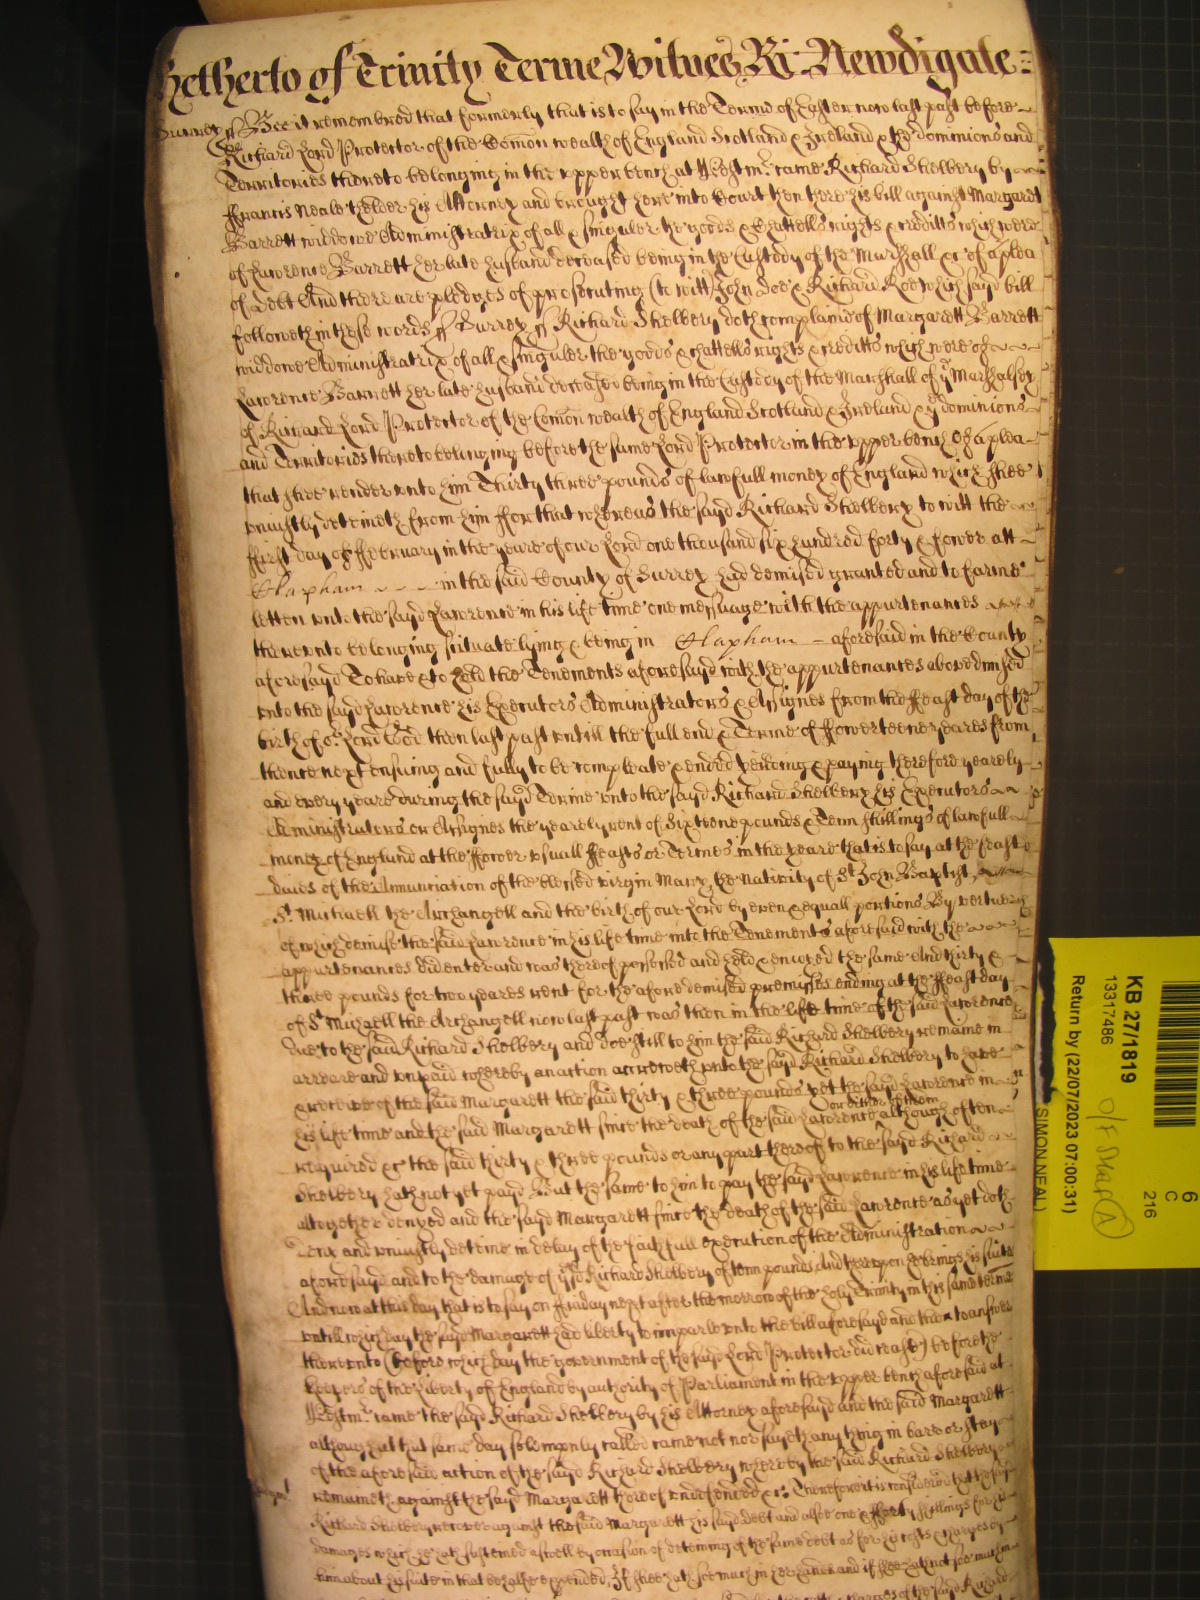 Hetherto of Trinity Terme Witnes Ri: Newdigate
Surrey ss Bee it remembred that formerly that is to say in the Terme of Easter now last past before
Richard Lord Protector of the Comon wealth of England Scotland & Ireland & the dominions and
Territories thereto belonging in the upper bench at Westmr came Richard Shelbery by
Francis Neale thelder his Attorney and brought here into Court then there his bill against Margarett
Barrett widdowe Administratrix of all & singuler the goods & Chattells rights & creditts which were
of Lawrence Barrett her late husband deceased being in the Custody of the Marshall &c of a plea
of debt And there are pledges of prosecuting (to witt) John Doe & Richard Roe which said bill
followeth in these words ss Surrey ss Richard Shelbery doth complaine of Margarett Barrett
widdowe Administratrix of all & singuler the goods & chattells rights & creditts which were of
Lawrence Barrett her late husband deceased being in the Custody of the Marshall of ye Marshalsey
of Richard Lord Protector of the Comon wealth of England Scotland & Ireland & ye dominions
and Territories thereto belonging before the same Lord Protector in the upper bench Of a plea
that shee render unto him Thirty three pounds of lawfull money of England which shee
uniustly deteineth from him For that whereas the sayd Richard Shelbery to witt the
first day of February in the yeare of our Lord one thousand six hundred forty & fower att
Clapham - - - in the said County of Surrey had demised granted and to farme
letten unto the sayd Lawrence in his life time one messuage with the appurtenances
thereunto belonging situate lying & being in Clapham - aforesaid in the County
aforesayd To have & to hold the Tenements aforesayd with the appurtenantes above dmised
unto the sayd Lawrence his Executors Administrators & Assignes from the Feast day of the
birth of or Lord God then last past untill the full end & Terme of Fowerteene yeares from
thence next ensuing and fully to be compleate & ended yeilding & paying therefore yearely
and every yeare during the sayd Terme unto the sayd Richard Shelbery his Executors
Administrators or Assignes the yearely rent of Sixteene pounds & Tenn shillings of lawfull
money of England at the Fower usuall Feasts or Termes in the yeare that is to say at the feast
daies of the Annunciation of the blessed virgin Mary, the Nativity of St John Baptist,
St Michaell the Archangell and the birth of our Lord by even & equall portions By vertue
of which demise the said Lawrence in his life time into the Tenements aforesaid with the
appurtenances did enter and was thereof possessed and held & enioyed the same And thirty &
three pounds for two yeares rent for the afore demised premisses ending at the Feast day
of St Michaell the Archangell now last past was then in the life time of the said Lawrence
due to the said Richard Shelbery and doe still to him the said Richard Shelbery remaine in
arreare and unpaid whereby an action accreweth unto the sayd Richard Shelbery to have
& receive of the said Margarett the said thirty & three pounds yet the sayd Lawrence in
his life time and the said Margarett since the death of the said Lawrence or either of them although often
required &c the said thirty & three pounds or any part thereof to the sayd Richard
Shelbery hath not yet payd But the same to him to pay the sayd Lawrence in his life time
altogether denyed and the sayd Margarett since the death of the said Lawrence as yet doth
deny and uniustly deteine in delay of the faithfull execution of the Administration
aforesayd and to the damage of ye sd Richard Shelbery of tenn pounds And thereupon he brings his suite
And now at this day that is to say on Friday next after the morrow of the holy Trinity in this same terme
untill which day the sayd Margarett had liberty to imparle unto the bill aforesayd and then to answer
thereunto (before which day the government of the sayd Lord Protector did cease) before the
keepers of the liberty of England by authority of Parliament in the upper bench aforesaid at
Westmr came the sayd Richard Shelbery by his Attorney aforesayd and the said Margarett
although at that same day solempnly called came not nor sayeth any thing in barre or stay
of the aforesaid action of the sayd Richard Shelbery whereby the said Richard Shelbery
remaineth against the sayd Margarett thereof undefended &c. Therefore it is considered that the said
Richard Shelbery recover against the said Margarett his sayd debt and alsoe one & forty shillings for his
damages which he hath susteined aswell by occasion of deteining of the same debt as for his costs & charges by
him about his suite in that behalfe expended, If shee hath soe much in her hands and if shee hath not soe much in
KB 27/1819
13317486
Return by (22/07/2023 07:00:31)
SIMON NEAL)
6
C
216